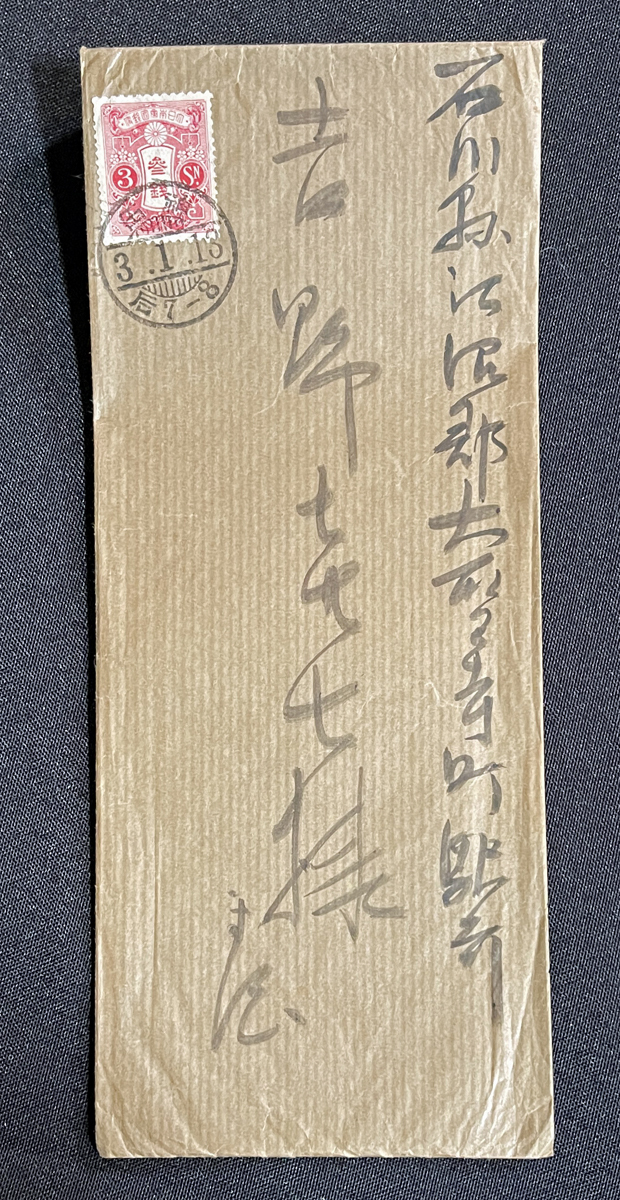 石川縣江沼郡大聖寺町
吉野㐂七様
大日本帝國郵便
3 參錢 Sn
3.1.13
后7-8